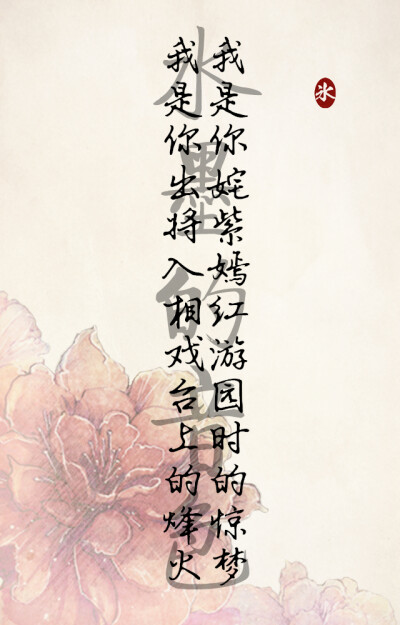 氷
我是你姹紫嫣红游园时的惊梦
我是你出将入相戏台上的烽火
水墨的音色